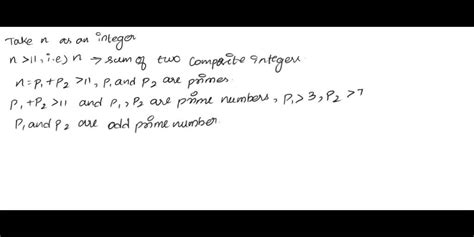 Take n as an integer
n>11, i.e) n → sum of two composite integer
n=p₁+p₂ >11, p₁ and p₂ are primes.
p₁+p₂>11 and p₁,p₂ are prime numbers, p₁>3, p₂>7
p₁ and p₂ are odd prime number